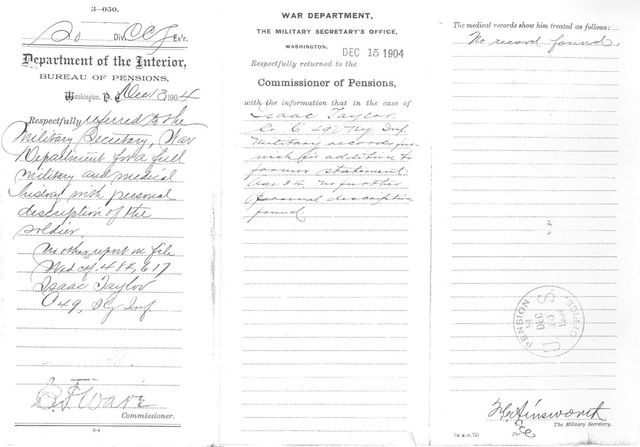 3-050.
So Div. O C J Ex'r.
Department of the Interior,
BUREAU OF PENSIONS,
Washington, D. C. Dec 13, 1904
Respectfully referred to the
Military Secretary, War
Department for a full
military and medical
history with personal
description of the
soldier.
No other report on file
Isaac Taylor
C 49, Ky Inf
Ware
Commissioner.
WAR DEPARTMENT,
THE MILITARY SECRETARY'S OFFICE,
WASHINGTON, DEC 15 1904
Respectfully returned to the
Commissioner of Pensions,
with the information that in the case of
Isaac Taylor
Co C 49, Ky Inf
Military records fur-
nish in addition to
former statement:
Age 34 no further
personal description
found
The medical records show him treated as follows:
No record found.
PENSION OFFICE
DEC
U S
F C Ainsworth
The Military Secretary.